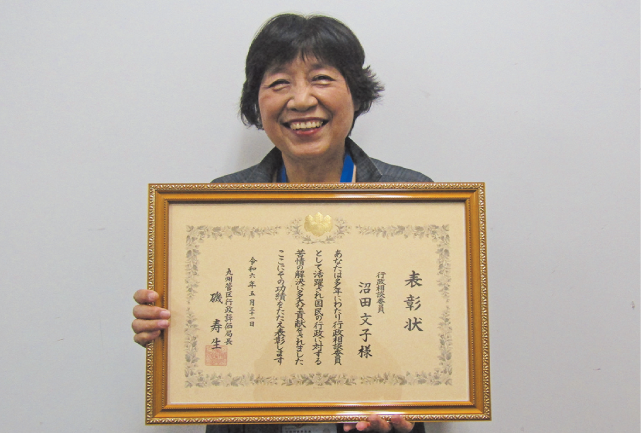 表彰状
行政相談委員
沼田文子様
あなたは多年にわたり行政相談委員
として活躍され国民の行政に対する
苦情の解決に多大の貢献をされました
ここにその功績をたたえ表彰します
令和六年五月三十一日
九州管区行政評価局長
磯寿生